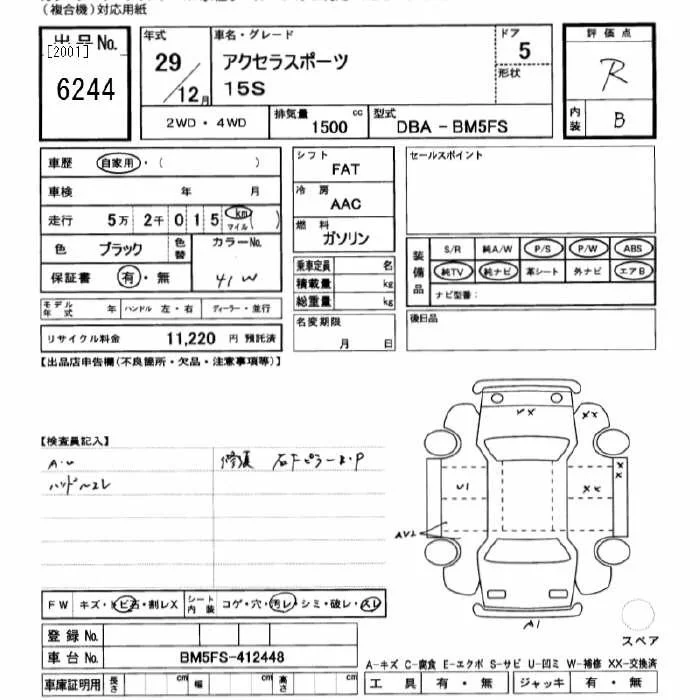 (複合機)対応用紙
出品No.
[2001]
6244
年式
29/12月
車名・グレード
アクセラスポーツ
15S
ドア
5
形状
評価点
R
内装
B
2WD・4WD
排気量
1500 cc
型式
DBA - BM5FS
車歴 自家用・( )
車検 年 月
走行 5万 2千 0 1 5 km マイル ( )
色 ブラック 色替 カラーNo.
保証書 有・無 41W
モデル年式 年 ハンドル 左・右 ディーラー・並行
リサイクル料金 11,220 円 預託済
シフト
FAT
冷房
AAC
燃料
ガソリン
乗車定員 名
積載量 kg
総重量 kg
名変期限
月 日
セールスポイント
装備品
S/R 純A/W P/S P/W ABS
純TV 純ナビ 革シート 外ナビ エアB
ナビ型番:
後日品
【出品店申告欄(不良箇所・欠品・注意事項等)】
【検査員記入】
A・U
修復
FW キズ・トビ石・割レX
シート内装 コゲ・穴・汚レ・シミ・破レ・スレ
登録No.
車台No. BM5FS-412448
車庫証明用 長さ cm 幅 cm 高さ cm
XX
XX
XX
XX
U1
AU2
A1
スペア
A-キズ C-腐食 E-エクボ S-サビ U-凹ミ W-補修 XX-交換済
工具 有・無 ジャッキ 有・無